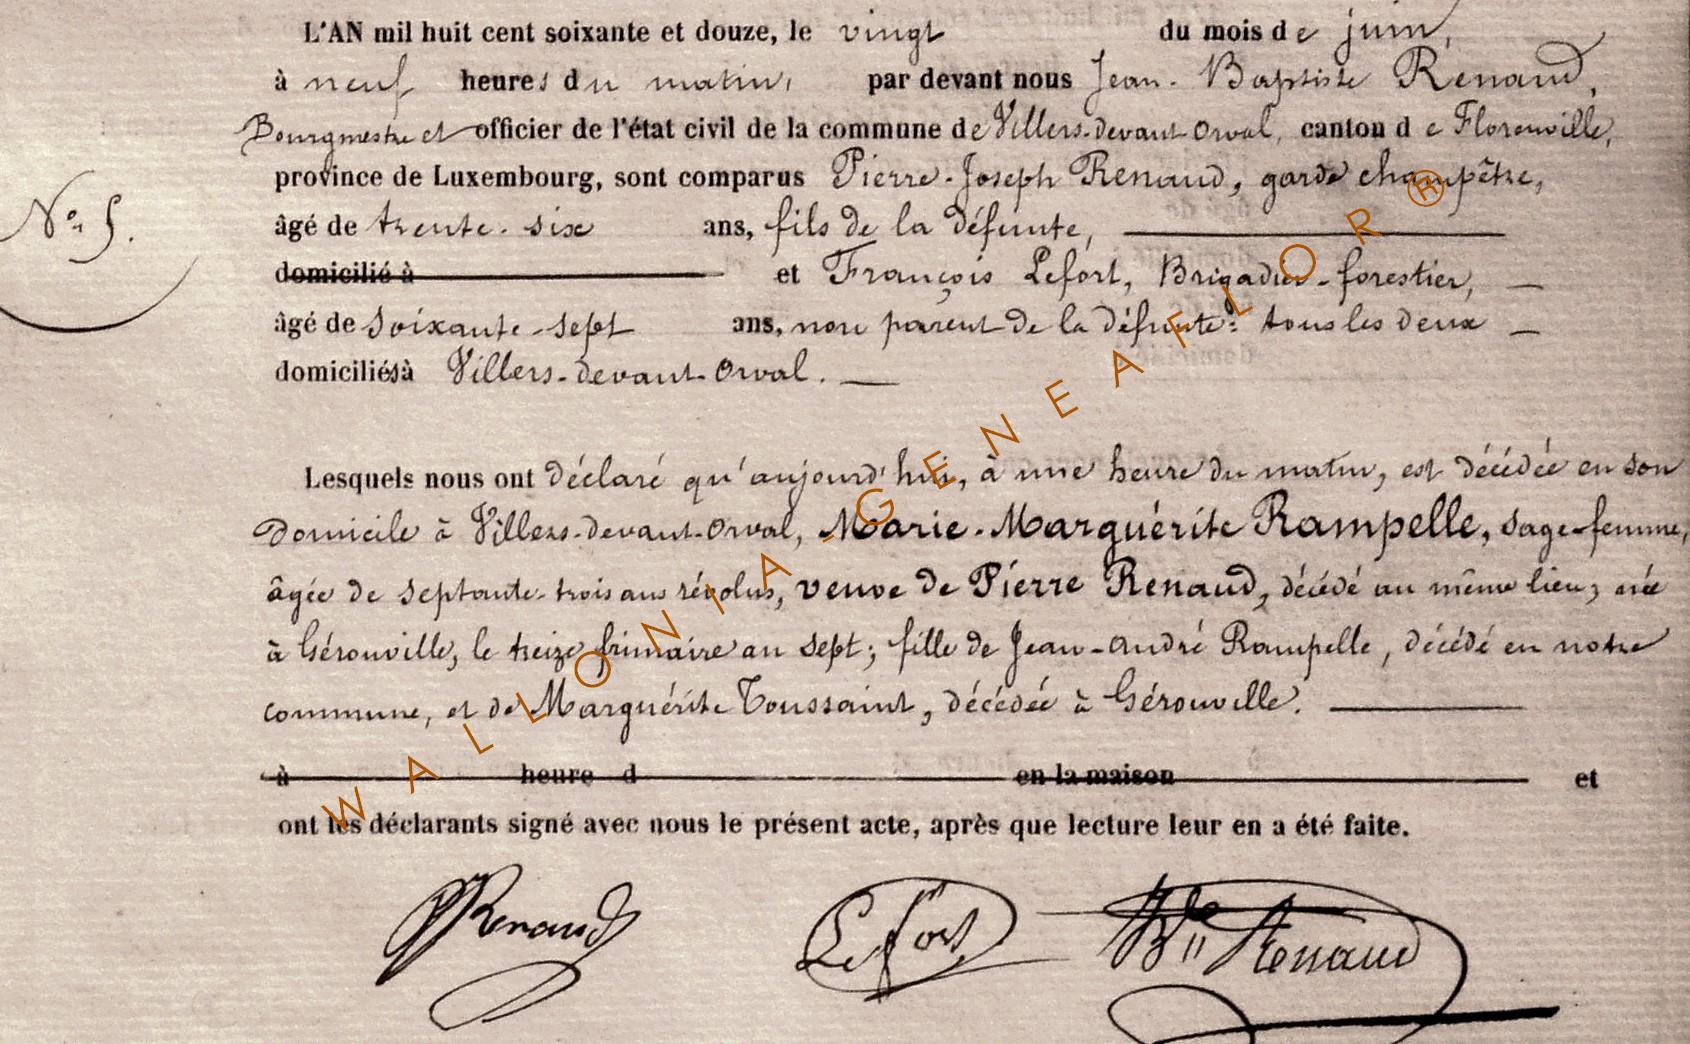 L'AN mil huit cent soixante et douze, le vingt du mois de juin,
à neuf heures du matin, par devant nous Jean-Baptiste Renaud,
Bourgmestre et officier de l'état civil de la commune de Villers-devant-Orval, canton de Florenville,
province de Luxembourg, sont comparus Pierre-Joseph Renaud, garde champêtre,
No 5.
âgé de trente-six ans, fils de la défunte,
domicilié à et François Lefort, Brigadier-forestier,
âgé de soixante-sept ans, non parent de la défunte: tous les deux
domiciliés à Villers-devant-Orval.
Lesquels nous ont déclaré qu'aujourd'hui, à une heure du matin, est décédée en son
domicile à Villers-devant-Orval, Marie-Marguérite Rampelle, sage-femme,
âgée de septante-trois ans révolus, veuve de Pierre Renaud, décédé au même lieu; née
à Gérouville, le treize frimaire an sept; fille de Jean-André Rampelle, décédé en notre
commune, et de Marguérite Toussaint, décédée à Gérouville.
à heure d en la maison et
ont les déclarants signé avec nous le présent acte, après que lecture leur en a été faite.
PJRenaud Lefort JBte Renaud
WALLONIA-GENEAFLOR®